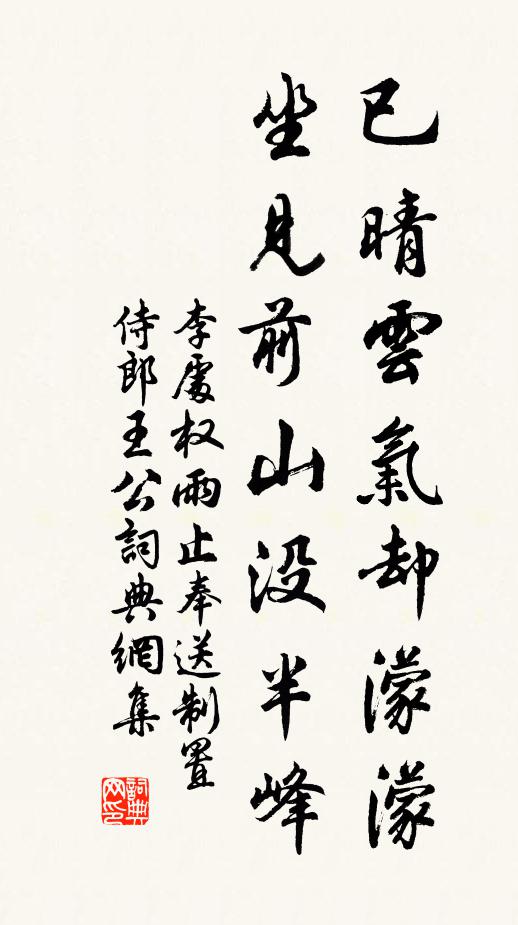 已晴雲氣却濛濛
坐見前山没半峰
李處权雨止奉送制置
侍郎王公詞典網集
詞典网印